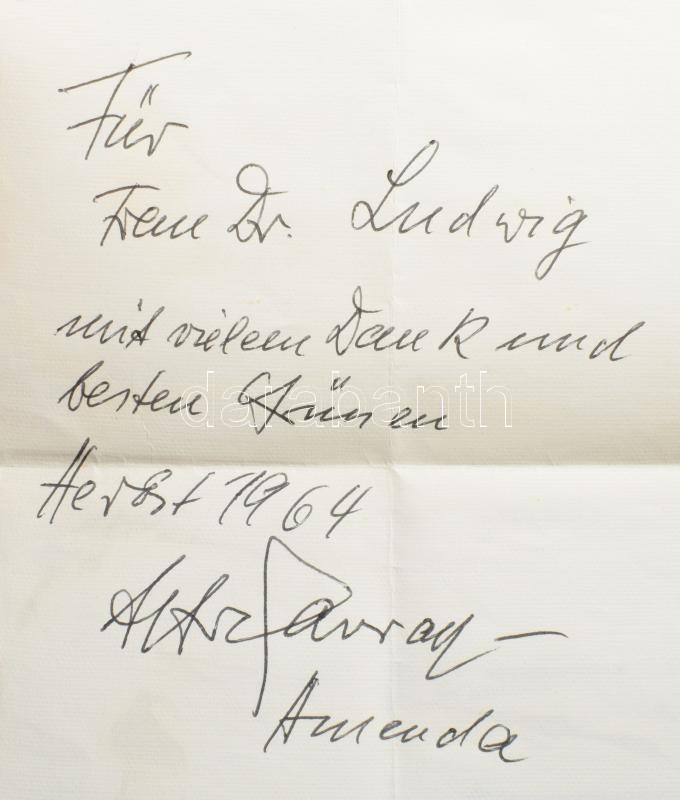 Für
Frau Dr. Ludwig
mit vielem Dank und
besten Grüssen
darabanth
Herbst 1964
Amenda